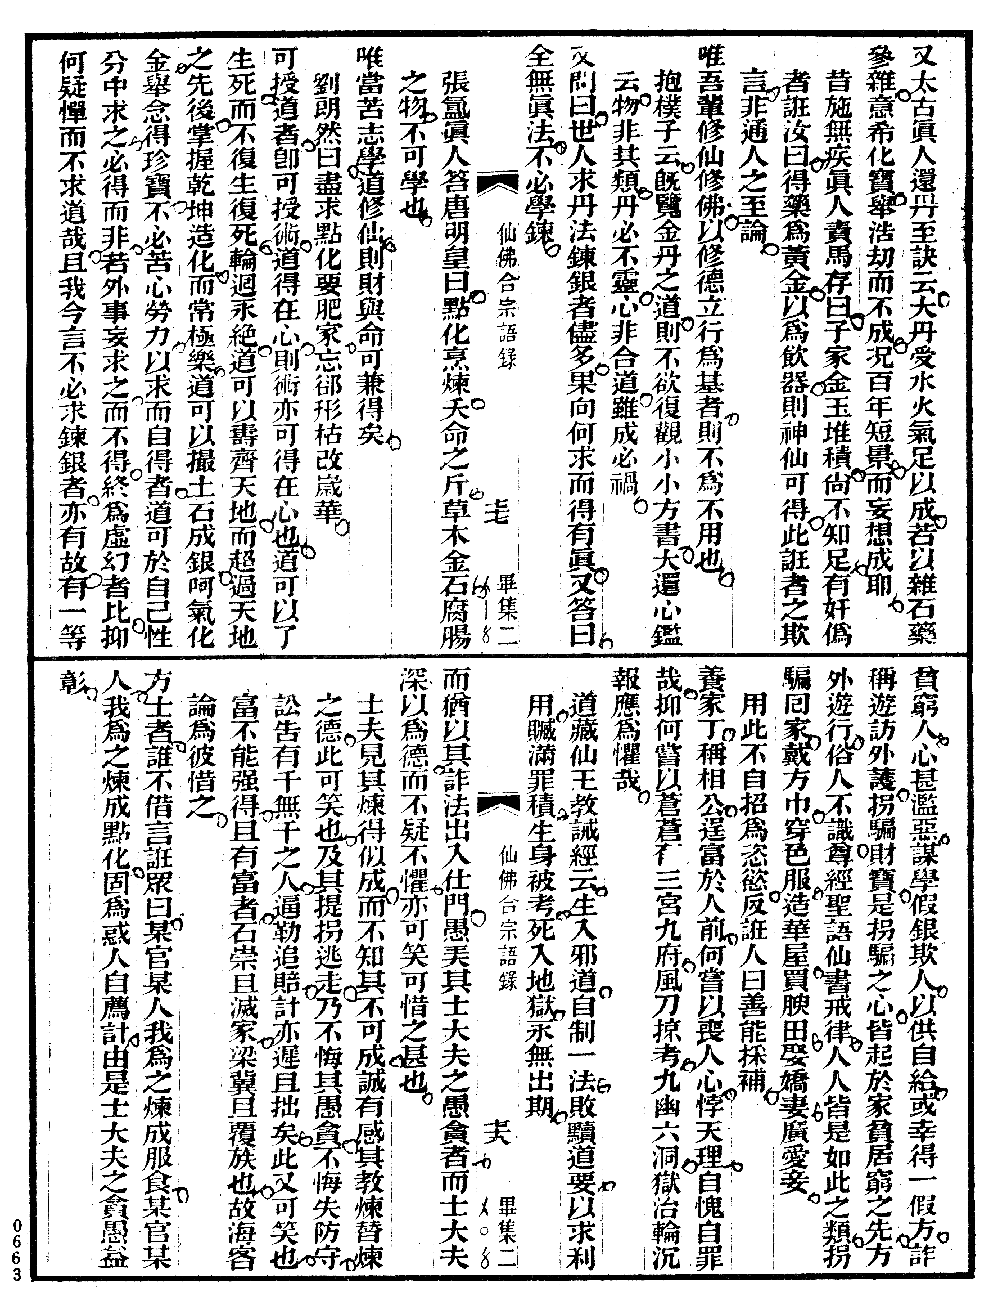 又太古眞人還丹至訣云大丹受水火氣足以成若以雜石藥
參雜意希化寶舉浩劫而不成况百年短景而妄想成耶
昔施無疾眞人賣馬存曰子家金玉堆積尙不知足有奸僞
者誑汝曰得藥爲黃金以爲飲器則神仙可得此誑者之欺
言非通人之至論
唯吾輩修仙修佛以修德立行爲基者則不爲不用也
抱樸子云旣覽金丹之道則不欲復觀小小方書大還心鑑
云物非其類丹必不靈心非合道雖成必禍
又問曰世人求丹法鍊銀者儘多果向何求而得有眞又答曰
全無眞法不必學鍊
仙佛合宗語錄
畢集二
張氳眞人答唐明皇曰點化烹煉夭命之斤草木金石腐腸
之物不可學也
唯當苦志學道修仙則財與命可兼得矣
劉朗然曰盡求點化要肥家忘郤形枯改歲華
可授道者卽可授術道得在心則術亦可得在心也道可以了
生死而不復生復死輪迴永絕道可以壽齊天地而超過天地
之先後掌握乾坤造化而常極樂道可以撮土石成銀呵氣化
金舉念得珍寶不必苦心勞力以求而自得者道可於自己性
分中求之必得而非若外事妄求之而不得終爲虛幻者比抑
何疑憚而不求道哉且我今言不必求鍊銀者亦有故有一等
貧窮人心甚濫惡謀學假銀欺人以供自給或幸得一假方詐
稱遊訪外護拐騙財寶是拐騙之心皆起於家貧居窮之先方
外遊行俗人不識尊經聖語仙書戒律人人皆是如此之類拐
騙囘家戴方巾穿色服造華屋買腴田娶嬌妻廣愛妾
用此不自招爲恣慾反誑人曰善能採補
養家丁稱相公逞富於人前何嘗以喪人心悖天理自愧自罪
哉抑何嘗以蒼蒼有三宮九府風刀掠考九幽六洞獄治輪沉
報應爲懼哉
道藏仙王教誡經云生入邪道自制一法敗黷道要以求利
用贓滿罪積生身被考死入地獄永無出期
仙佛合宗語錄
畢集二
而猶以其詐法出入仕門愚弄其士大夫之愚貪者而士大夫
深以爲德而不疑不懼亦可笑可惜之甚也
士夫見其煉得似成而不知其不可成誠有感其教煉替煉
之德此可笑也及其提拐逃走乃不悔其愚貪不悔失防守
訟告有千無干之人逼勒追賠計亦遲且拙矣此又可笑也
富不能强得且有富者石崇且滅家梁冀且覆族也故海客
論爲彼惜之
方士者誰不借言誑眾曰某官某人我爲之煉成服食某官某
人我爲之煉成點化固爲惑人自薦計由是士大夫之貪愚益
彰
0663